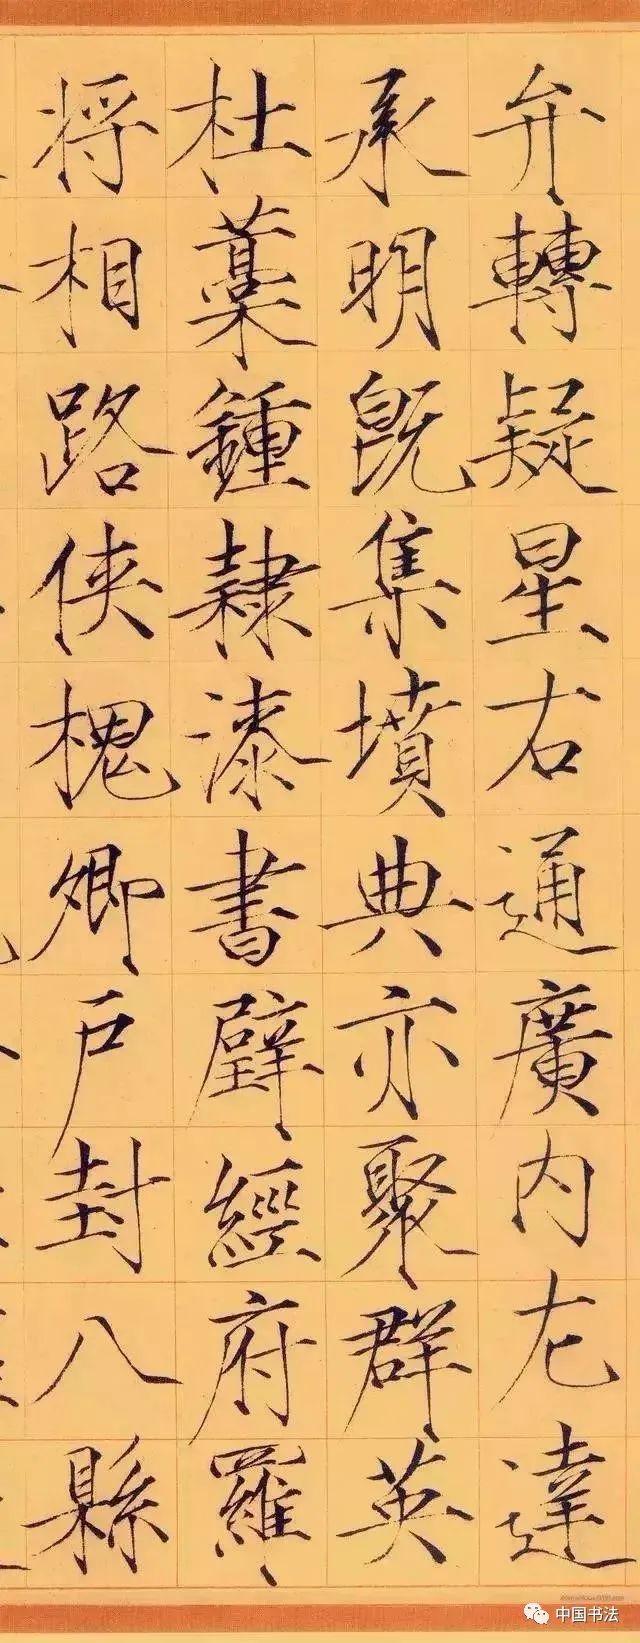 弁轉疑星右通廣内左達
承明既集墳典亦聚群英
杜藁鍾隸漆書壁經府羅
将相路俠槐卿户封八縣
中国书法